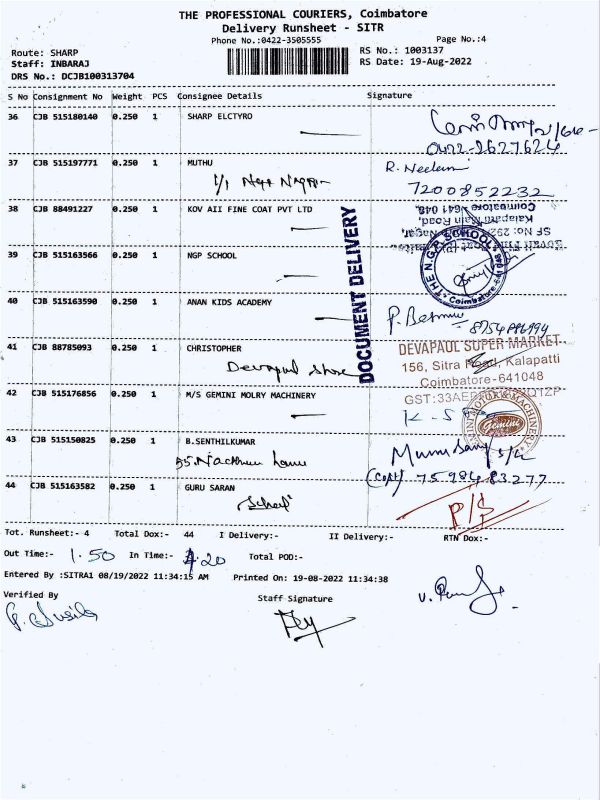 THE PROFESSIONAL COURIERS, Coimbatore
Delivery Runsheet - SITR
Phone No.:0422-3505555
Page No.:4
Route: SHARP
RS No.: 1003137
Staff: INBARAJ
RS Date: 19-Aug-2022
DRS No.: DCJB100313704
S No Consignment No Weight PCS Consignee Details Signature
36 CJB 515180140 0.250 1 SHARP ELCTYRO
0422-2627624
37 CJB 515197771 0.250 1 MUTHU
R. Neelam
7200852232
38 CJB 88491227 0.250 1 KOV AII FINE COAT PVT LTD
Kalapatti Main Road,
Coimbatore - 641 048.
39 CJB 515163566 0.250 1 NGP SCHOOL
THE N.G.P. SCHOOL
Coimbatore
DOCUMENT DELIVERY
40 CJB 515163590 0.250 1 ANAN KIDS ACADEMY
41 CJB 88785093 0.250 1 CHRISTOPHER
Devapaul Store
DEVAPAUL SUPER MARKET
156, Sitra Road, Kalapatti
Coimbatore-641048
42 CJB 515176856 0.250 1 M/S GEMINI MOLRY MACHINERY
Gemini
43 CJB 515150825 0.250 1 B.SENTHILKUMAR
75984 83277
44 CJB 515163582 0.250 1 GURU SARAN
P/S
Tot. Runsheet:- 4 Total Dox:- 44 I Delivery:- II Delivery:- RTN Dox:-
Out Time:- 1.50 In Time:- 4.20 Total POD:-
Entered By :SITRA1 08/19/2022 11:34:15 AM Printed On: 19-08-2022 11:34:38
Verified By
Staff Signature
G. Susila